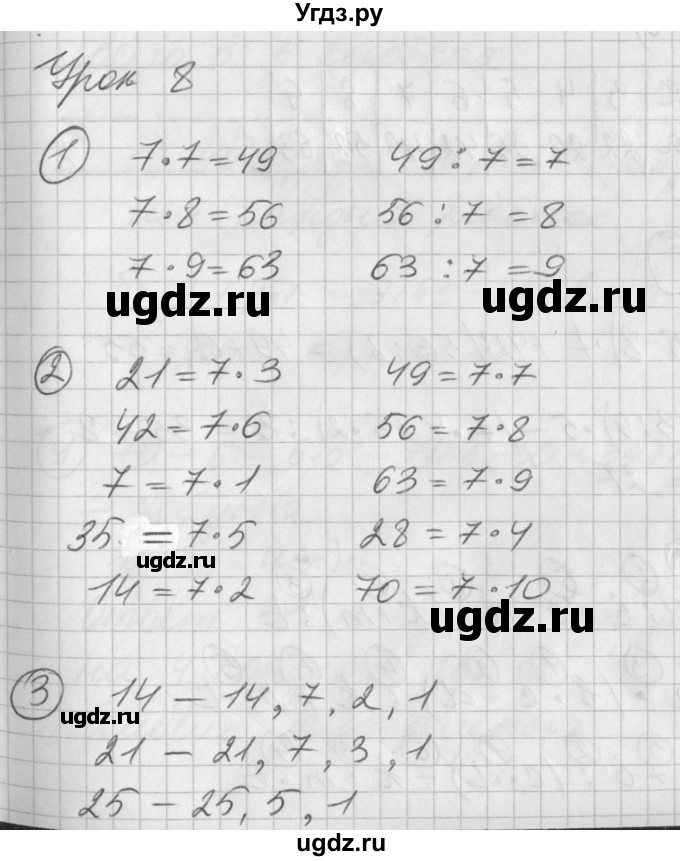 Угдз.ру
Урок 8
1 7·7=49 49:7=7
7·8=56 56:7=8
7·9=63 63:7=9
ugdz.ru ugdz.ru
2 21=7·3 49=7·7
42=7·6 56=7·8
7=7·1 63=7·9
35=7·5 28=7·4
ugdz.ru
14=7·2 70=7·10
ugdz.ru
3 14 – 14, 7, 2, 1
ugdz.ru
21 – 21, 7, 3, 1
25 – 25, 5, 1
ugdz.ru